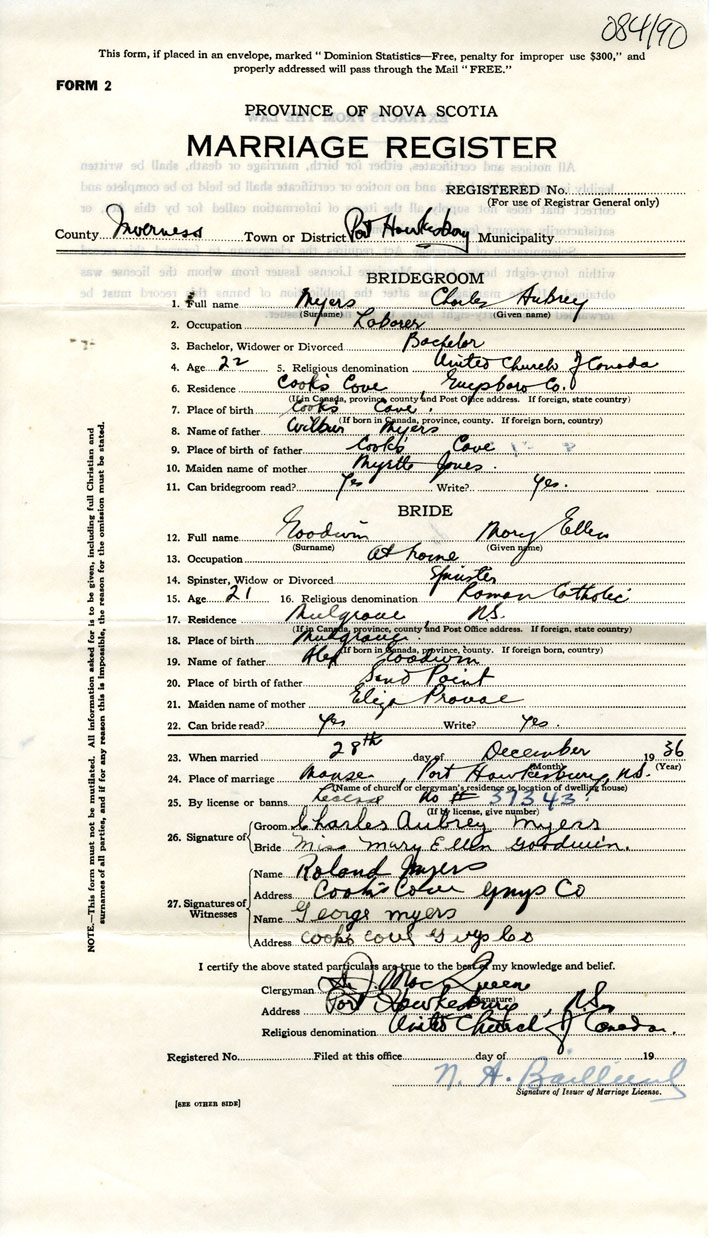 084190
This form, if placed in an envelope, marked "Dominion Statistics—Free, penalty for improper use $300," and
properly addressed will pass through the Mail "FREE."
FORM 2
PROVINCE OF NOVA SCOTIA
MARRIAGE REGISTER
REGISTERED No.
(For use of Registrar General only)
County Inverness Town or District Port Hawkesbury Municipality
BRIDEGROOM
1. Full name Myers Charles Aubrey
(Surname) (Given name)
2. Occupation Laborer
3. Bachelor, Widower or Divorced Bachelor
4. Age 22 5. Religious denomination United Church of Canada
6. Residence Cook's Cove Guysboro Co.
(If in Canada, province, county and Post Office address. If foreign, state country)
7. Place of birth Cooks Cove.
(If born in Canada, province, county. If foreign born, country)
8. Name of father Wilbur Myers
9. Place of birth of father Cooks Cove
10. Maiden name of mother Myrtle Jones.
11. Can bridegroom read? Yes Write? Yes.
BRIDE
12. Full name Goodwin Mary Ellen
(Surname) (Given name)
13. Occupation At home
14. Spinster, Widow or Divorced Spinster
15. Age 21 16. Religious denomination Roman Catholic
17. Residence Mulgrave, N.S.
(If in Canada, province, county and Post Office address. If foreign, state country)
18. Place of birth Mulgrave.
(If born in Canada, province, county. If foreign born, country)
19. Name of father Alex Goodwin
20. Place of birth of father Sand Point
21. Maiden name of mother Eliza
22. Can bride read? Yes Write? Yes.
23. When married 28th day of December 1936
(Month) (Year)
24. Place of marriage Manse, Port Hawkesbury, N.S.
(Name of church or clergyman's residence or location of dwelling house)
25. By license or banns License No # 37343.
(If by license, give number)
26. Signature of
Groom Charles Aubrey Myers
Bride Miss Mary Ellen Goodwin.
27. Signatures of Witnesses
Name Roland Myers
Address Cook's Cove Guys Co
Name George myers
Address cooks cove Guys Co
I certify the above stated particulars are true to the best of my knowledge and belief.
Clergyman MacQueen
(Signature)
Address Port Hawkesbury, N.S.
Religious denomination United Church of Canada.
Registered No. Filed at this office day of 19
N. A.
Signature of Issuer of Marriage License.
[SEE OTHER SIDE]
NOTE.—This form must not be mutilated. All information asked for is to be given, including full Christian and
surnames of all parties, and if for any reason this is impossible, the reason for the omission must be stated.